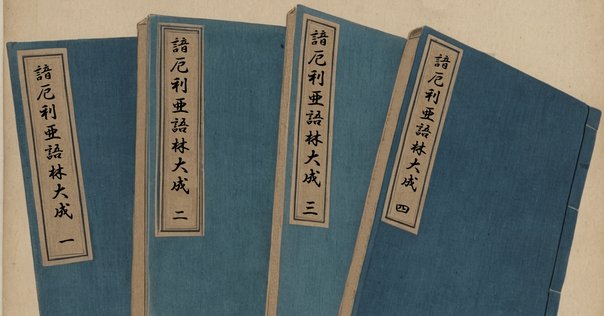 諳厄利亜語林大成 一
諳厄利亜語林大成 二
諳厄利亜語林大成 三
諳厄利亜語林大成 四